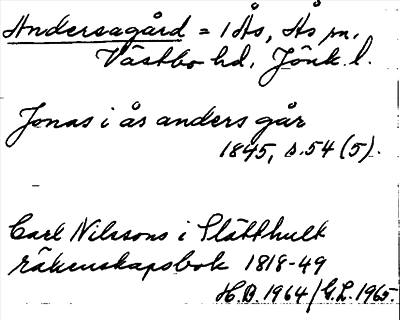 Andersagård = 1 Ås, Ås sn,
Västbo hd, Jönk. l.
Jonas i ås anders går
1845, s. 54 (5).
Carl Nilssons i Slätthult
räkenskapsbok 1818-49
H.B. 1964/G.L. 1965.